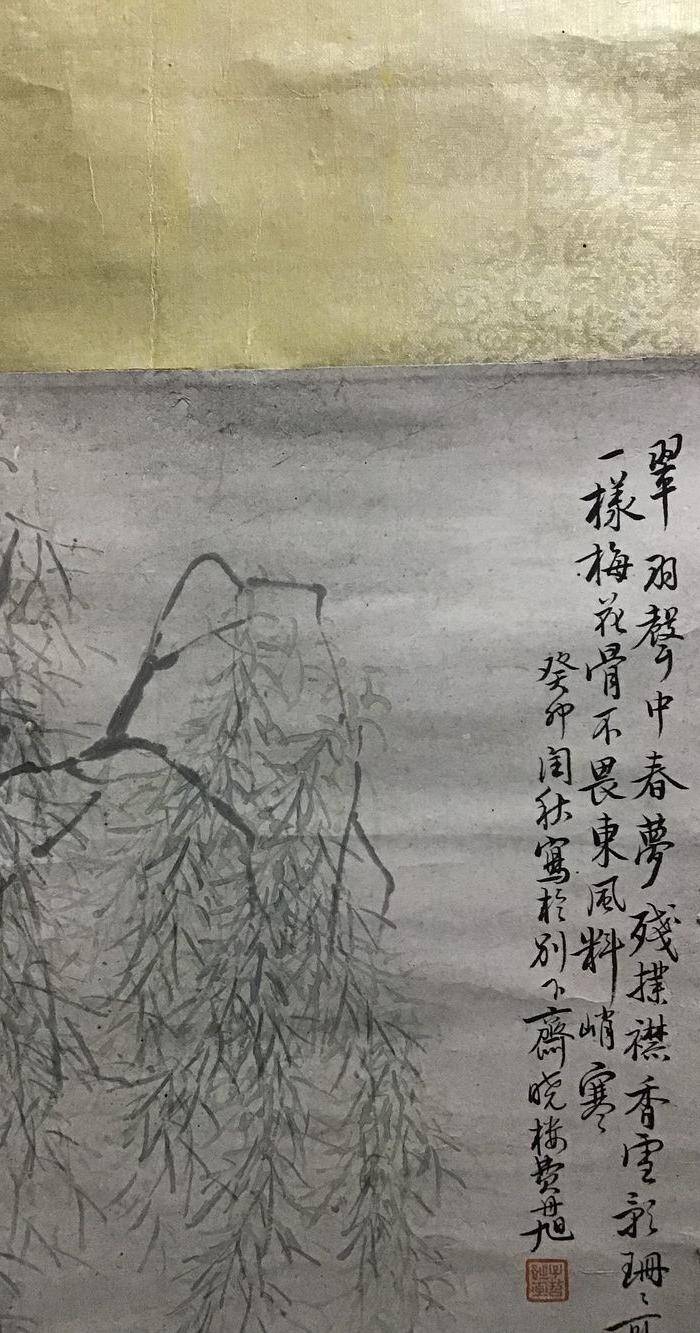 翠羽聲中春夢殘撲襟香雪影珊〻可
一樣梅花骨不畏東風料峭寒
癸卯閏秋寫於別下齋曉樓費丹旭